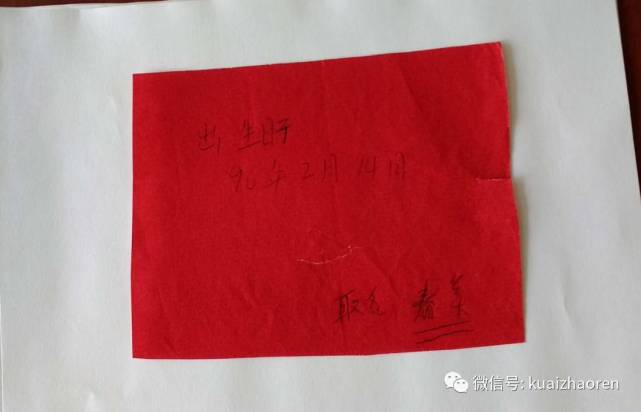 出生时
90年2月14日
取名 春美
微信号: kuaizhaoren